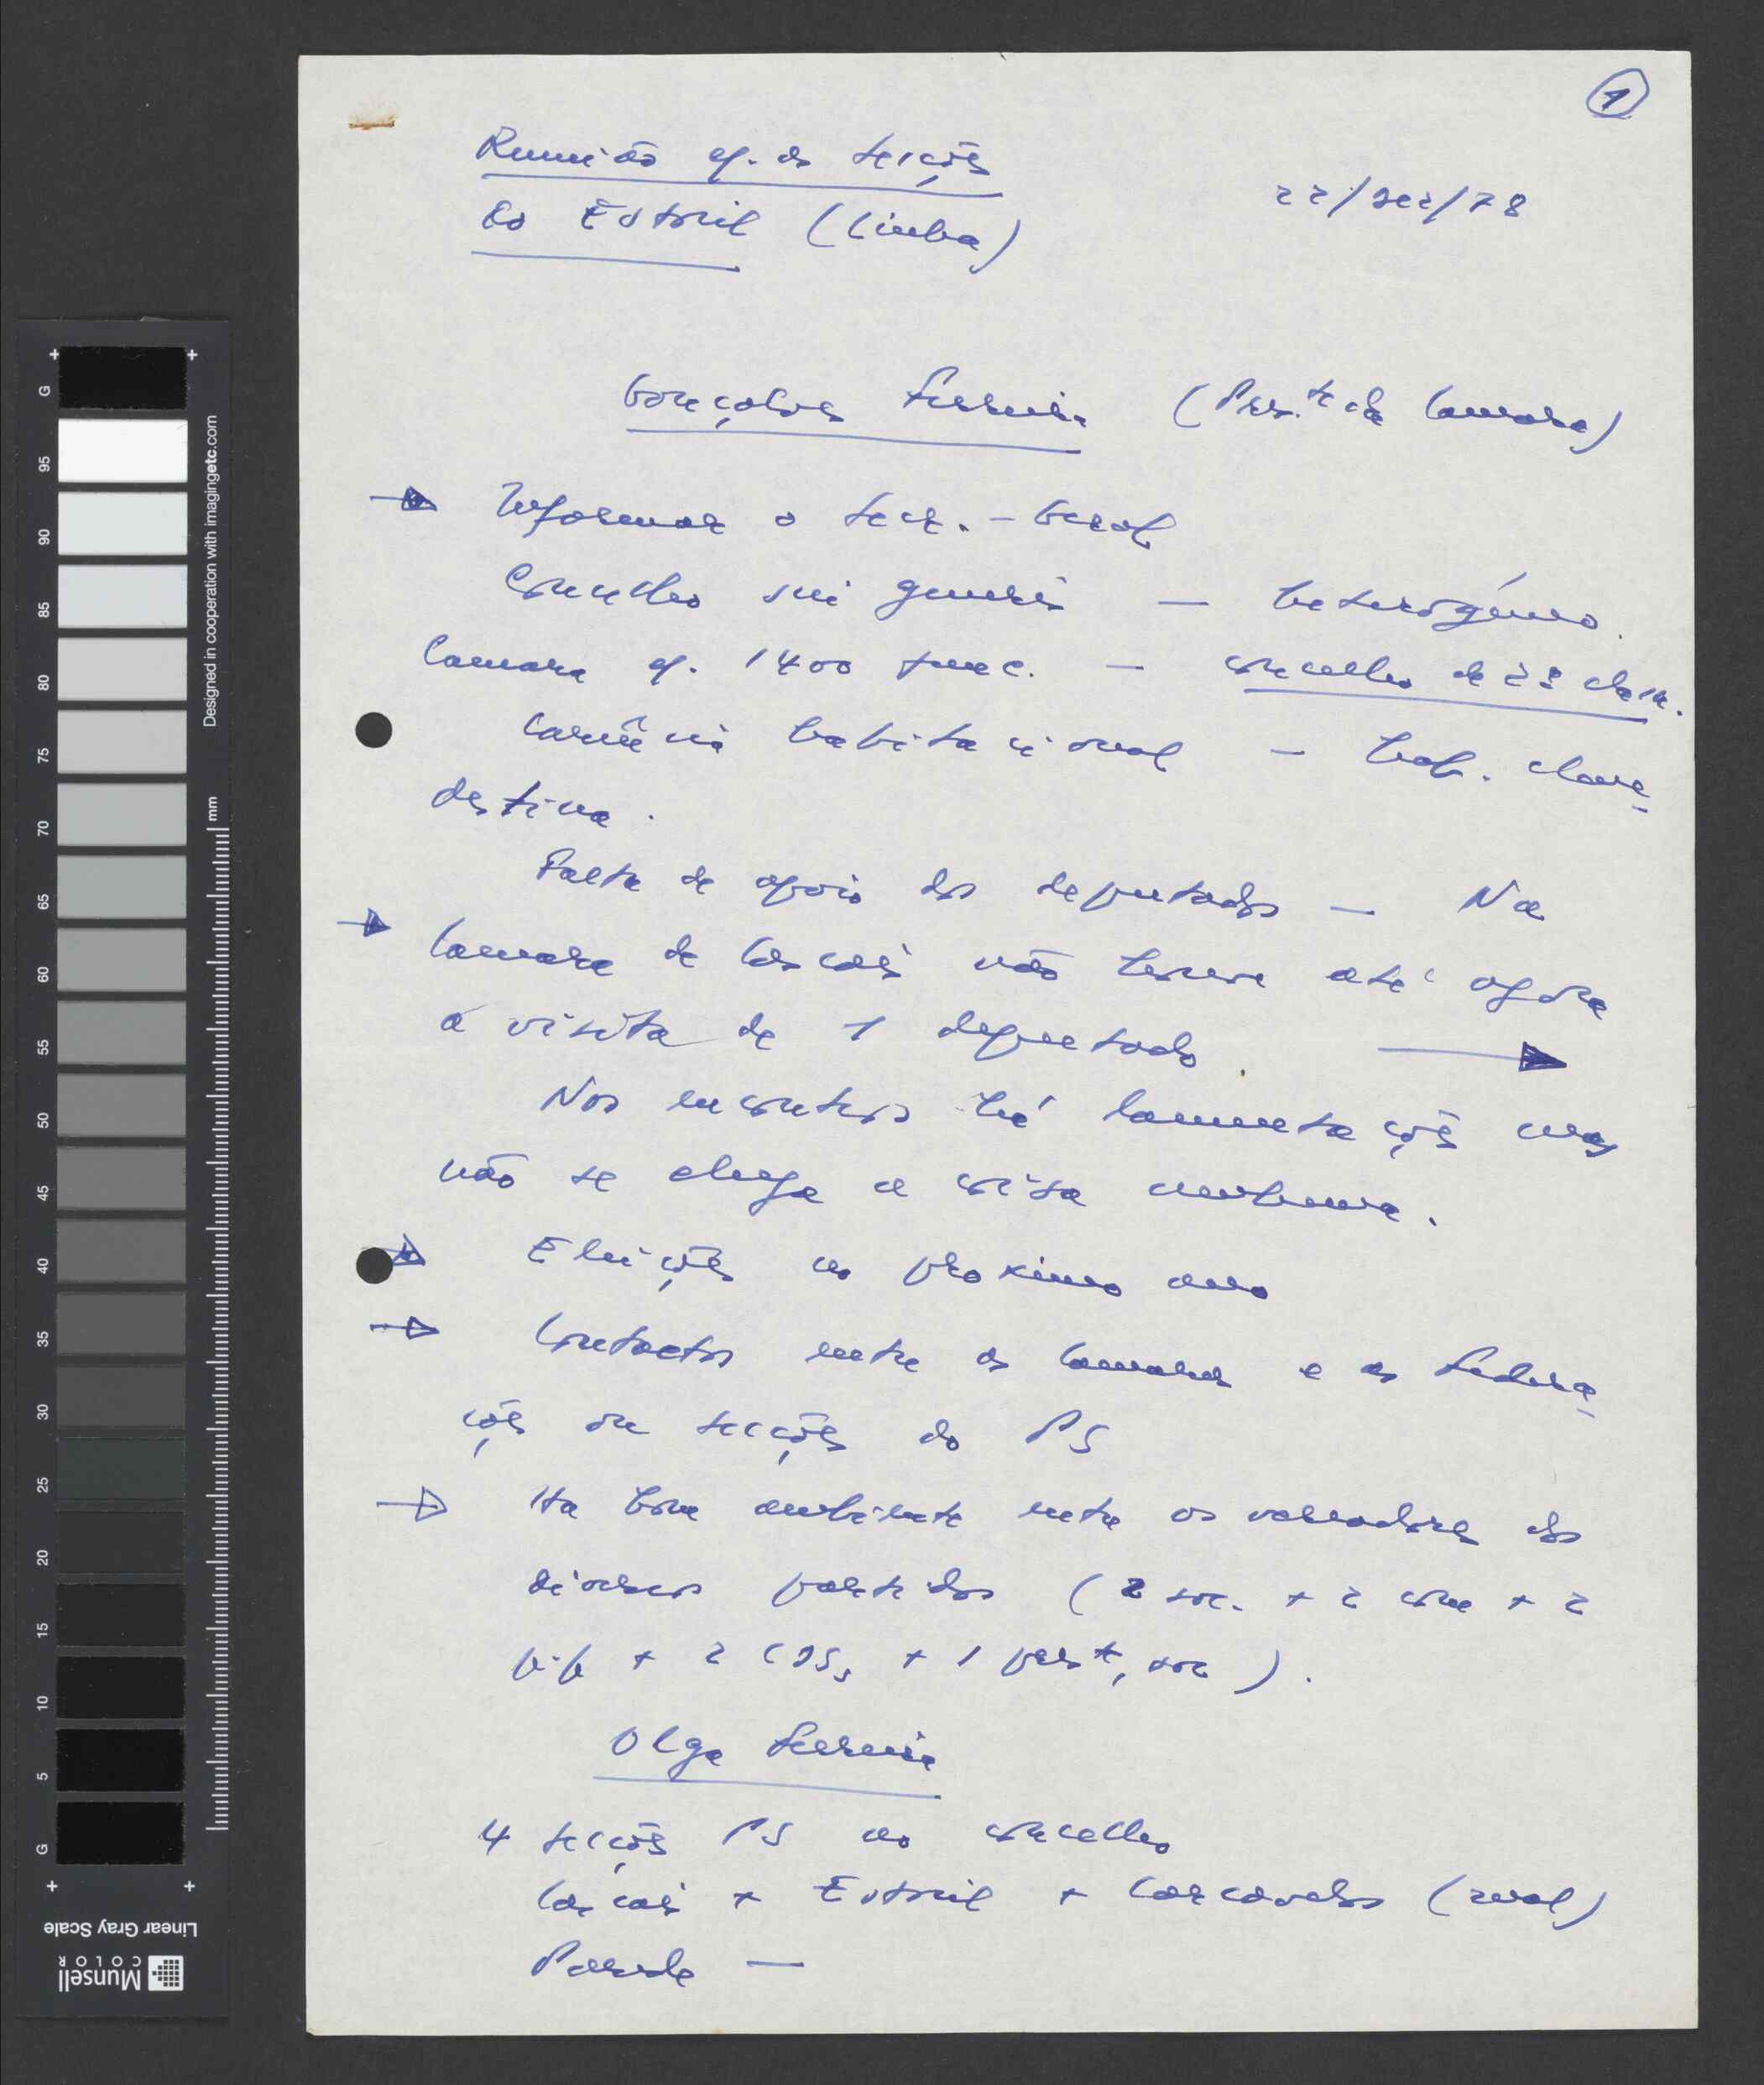 1
Reunião c/. as secções
do Estoril (Linha)
22/Dez/78
Gonçalves Ferreira (Pres.te da Camara)
Informar o Secr. - Geral
Concelho sui generis — heterogéneo.
Camara c/. 1400 func. — concelho de 2ª clas.
Carência habitacional — hab. clan-
destina.
Falta de apoio dos deputados — Na
Camara de Cascais não teve até agora
a visita de 1 deputado.
Nos encontros há lamentações mas
não se chega a coisa nenhuma.
Eleições no proximo ano
Contactos entre as Camaras e as Federa-
ções ou secções do PS
Ha bom ambiente entre os vereadores dos
diversos partidos (2 soc. + 2 com + 2
+ 2 CDS, + 1 pres.te, soc).
Olga Ferreira
4 secções PS no concelho
Cascais + Estoril + Carcavelos (rural)
Parede —
Designed in cooperation with imagingetc.com
mm
G 95 90 85 80 75 70 65 60 55 50 45 40 35 30 25 20 15 10 5 G
Linear Gray Scale
Munsell
COLOR